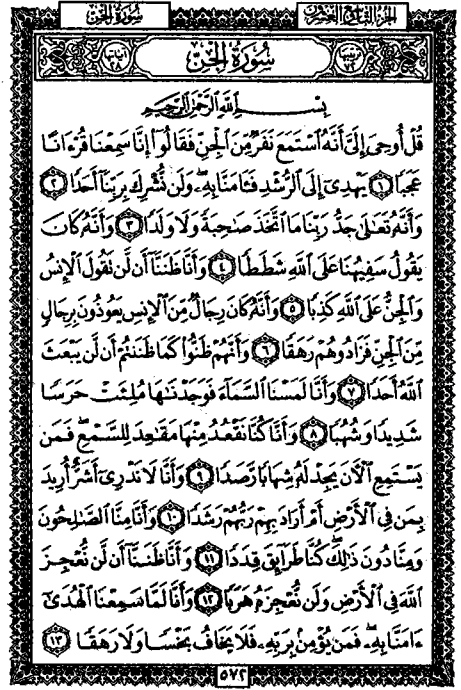 الجزء التاسع والعشرون
سورة الجن
ترتيبها ٧٢ سورة الجن آياتها ٢٨
بِسْمِ اللَّهِ الرَّحْمَٰنِ الرَّحِيمِ
قُلْ أُوحِيَ إِلَيَّ أَنَّهُ ٱسْتَمَعَ نَفَرٌ مِّنَ ٱلْجِنِّ فَقَالُوٓا۟ إِنَّا سَمِعْنَا قُرْءَانًا
عَجَبًا ١ يَهْدِىٓ إِلَى ٱلرُّشْدِ فَـَٔامَنَّا بِهِۦ ۖ وَلَن نُّشْرِكَ بِرَبِّنَآ أَحَدًا ٢
وَأَنَّهُۥ تَعَـٰلَىٰ جَدُّ رَبِّنَا مَا ٱتَّخَذَ صَـٰحِبَةً وَلَا وَلَدًا ٣ وَأَنَّهُۥ كَانَ
يَقُولُ سَفِيهُنَا عَلَى ٱللَّهِ شَطَطًا ٤ وَأَنَّا ظَنَنَّآ أَن لَّن تَقُولَ ٱلْإِنسُ
وَٱلْجِنُّ عَلَى ٱللَّهِ كَذِبًا ٥ وَأَنَّهُۥ كَانَ رِجَالٌ مِّنَ ٱلْإِنسِ يَعُوذُونَ بِرِجَالٍ
مِّنَ ٱلْجِنِّ فَزَادُوهُمْ رَهَقًا ٦ وَأَنَّهُمْ ظَنُّوا۟ كَمَا ظَنَنتُمْ أَن لَّن يَبْعَثَ
ٱللَّهُ أَحَدًا ٧ وَأَنَّا لَمَسْنَا ٱلسَّمَآءَ فَوَجَدْنَـٰهَا مُلِئَتْ حَرَسًا
شَدِيدًا وَشُهُبًا ٨ وَأَنَّا كُنَّا نَقْعُدُ مِنْهَا مَقَـٰعِدَ لِلسَّمْعِ ۖ فَمَن
يَسْتَمِعِ ٱلْـَٔانَ يَجِدْ لَهُۥ شِهَابًا رَّصَدًا ٩ وَأَنَّا لَا نَدْرِىٓ أَشَرٌّ أُرِيدَ
بِمَن فِى ٱلْأَرْضِ أَمْ أَرَادَ بِهِمْ رَبُّهُمْ رَشَدًا ١٠ وَأَنَّا مِنَّا ٱلصَّـٰلِحُونَ
وَمِنَّا دُونَ ذَٰلِكَ ۖ كُنَّا طَرَآئِقَ قِدَدًا ١١ وَأَنَّا ظَنَنَّآ أَن لَّن نُّعْجِزَ
ٱللَّهَ فِى ٱلْأَرْضِ وَلَن نُّعْجِزَهُۥ هَرَبًا ١٢ وَأَنَّا لَمَّا سَمِعْنَا ٱلْهُدَىٰٓ
ءَامَنَّا بِهِۦ ۖ فَمَن يُؤْمِنۢ بِرَبِّهِۦ فَلَا يَخَافُ بَخْسًا وَلَا رَهَقًا ١٣
٥٧٢